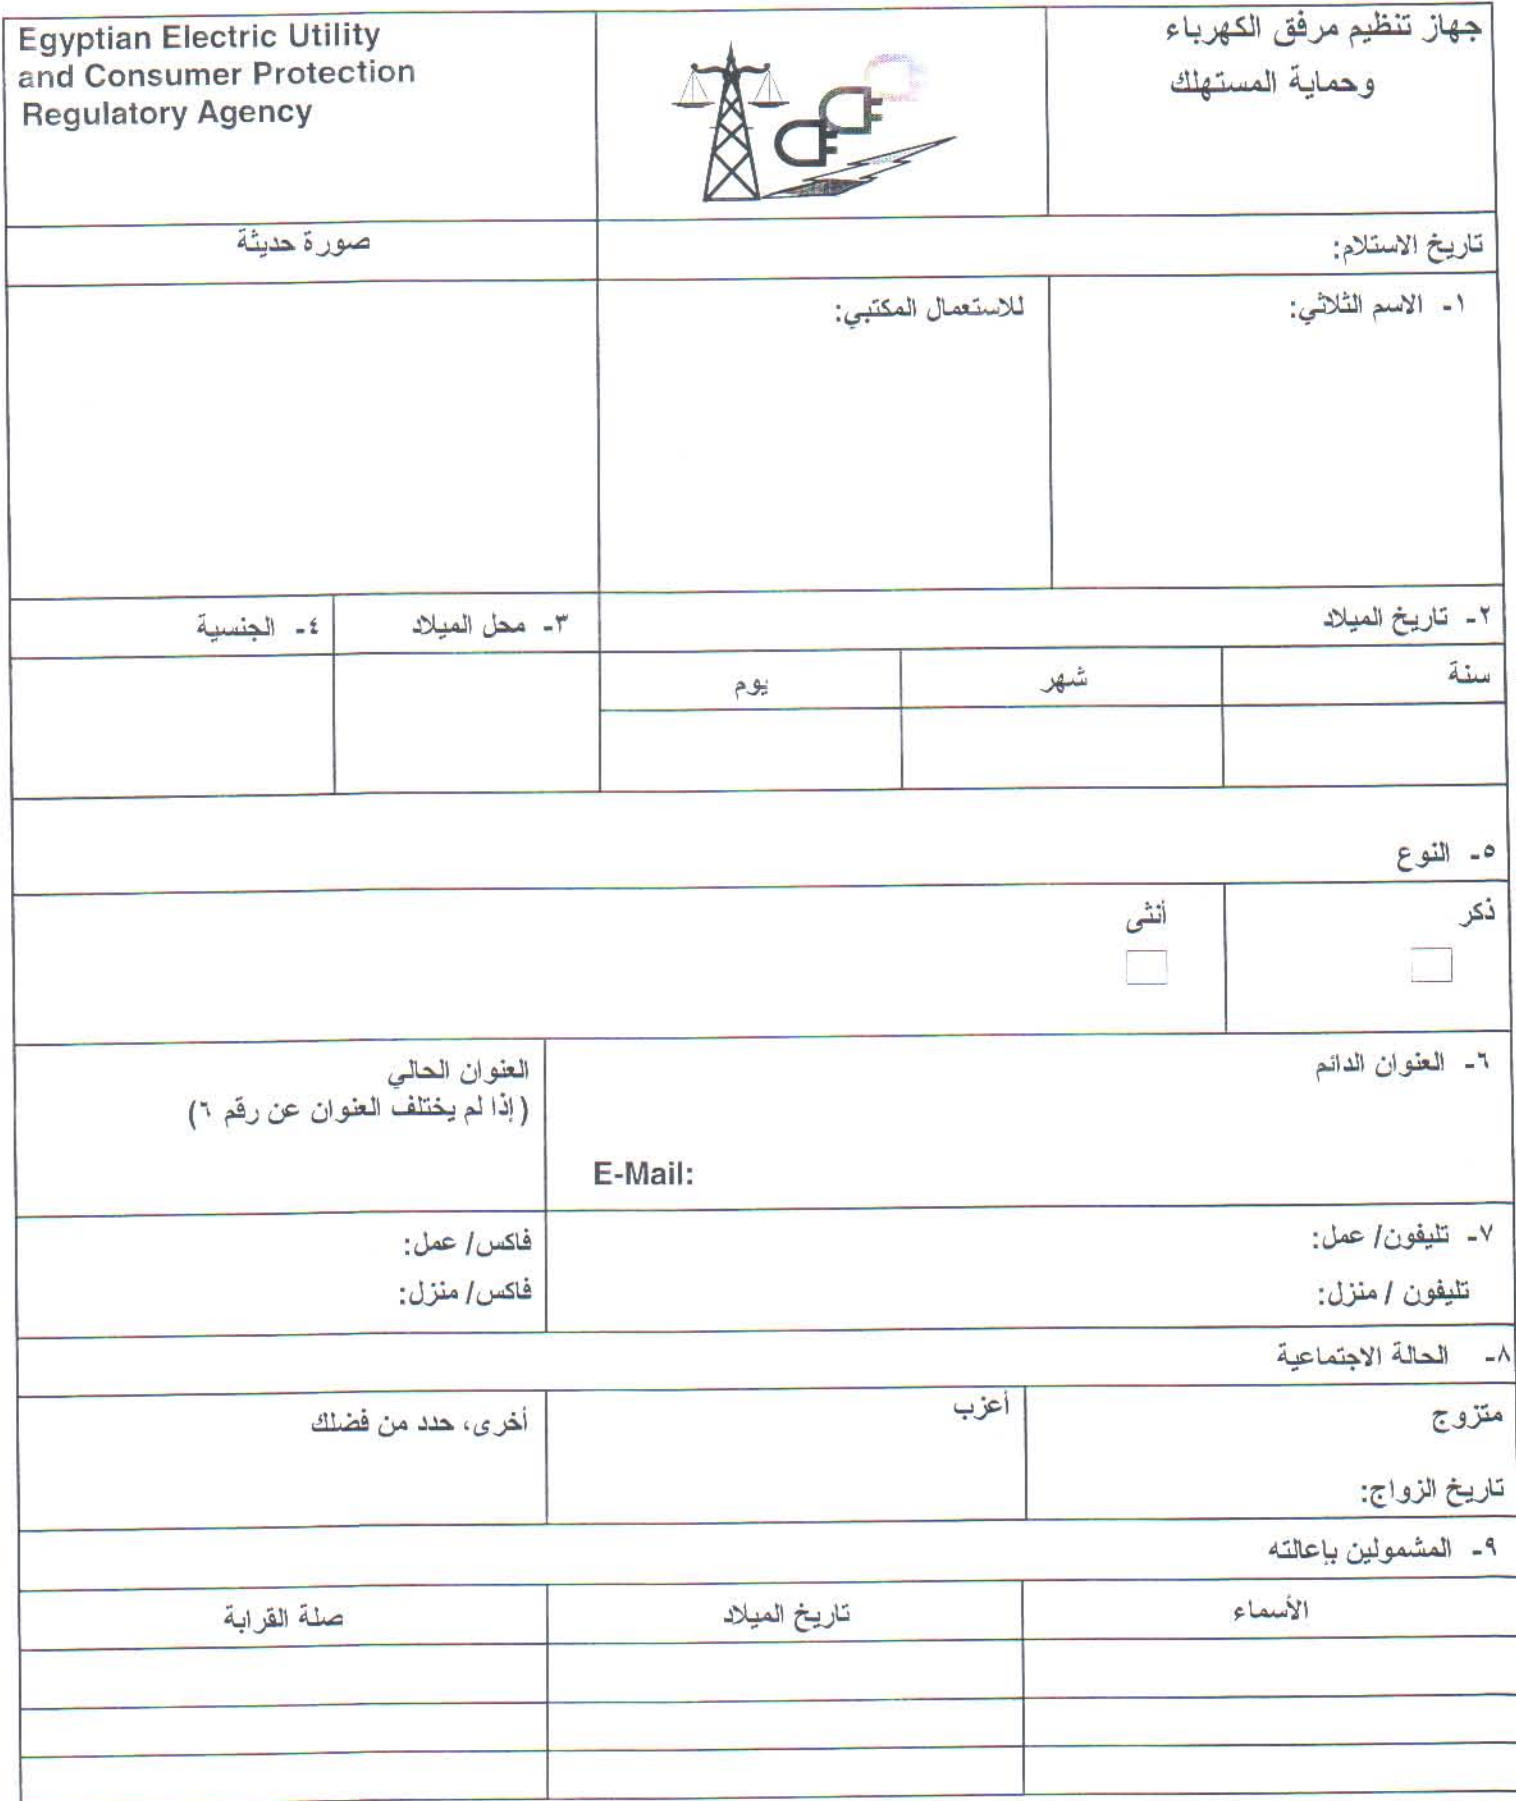 Egyptian Electric Utility
and Consumer Protection
Regulatory Agency
جهاز تنظيم مرفق الكهرباء
وحماية المستهلك
تاريخ الاستلام:
صورة حديثة
١- الاسم الثلاثي:
للاستعمال المكتبي:
٢- تاريخ الميلاد
٣- محل الميلاد
٤- الجنسية
سنة
شهر
يوم
٥- النوع
ذكر
أنثى
٦- العنوان الدائم
E-Mail:
العنوان الحالي
(إذا لم يختلف العنوان عن رقم ٦)
٧- تليفون/ عمل:
تليفون / منزل:
فاكس/ عمل:
فاكس/ منزل:
٨- الحالة الاجتماعية
متزوج
تاريخ الزواج:
أعزب
أخرى، حدد من فضلك
٩- المشمولين بإعالته
الأسماء
تاريخ الميلاد
صلة القرابة